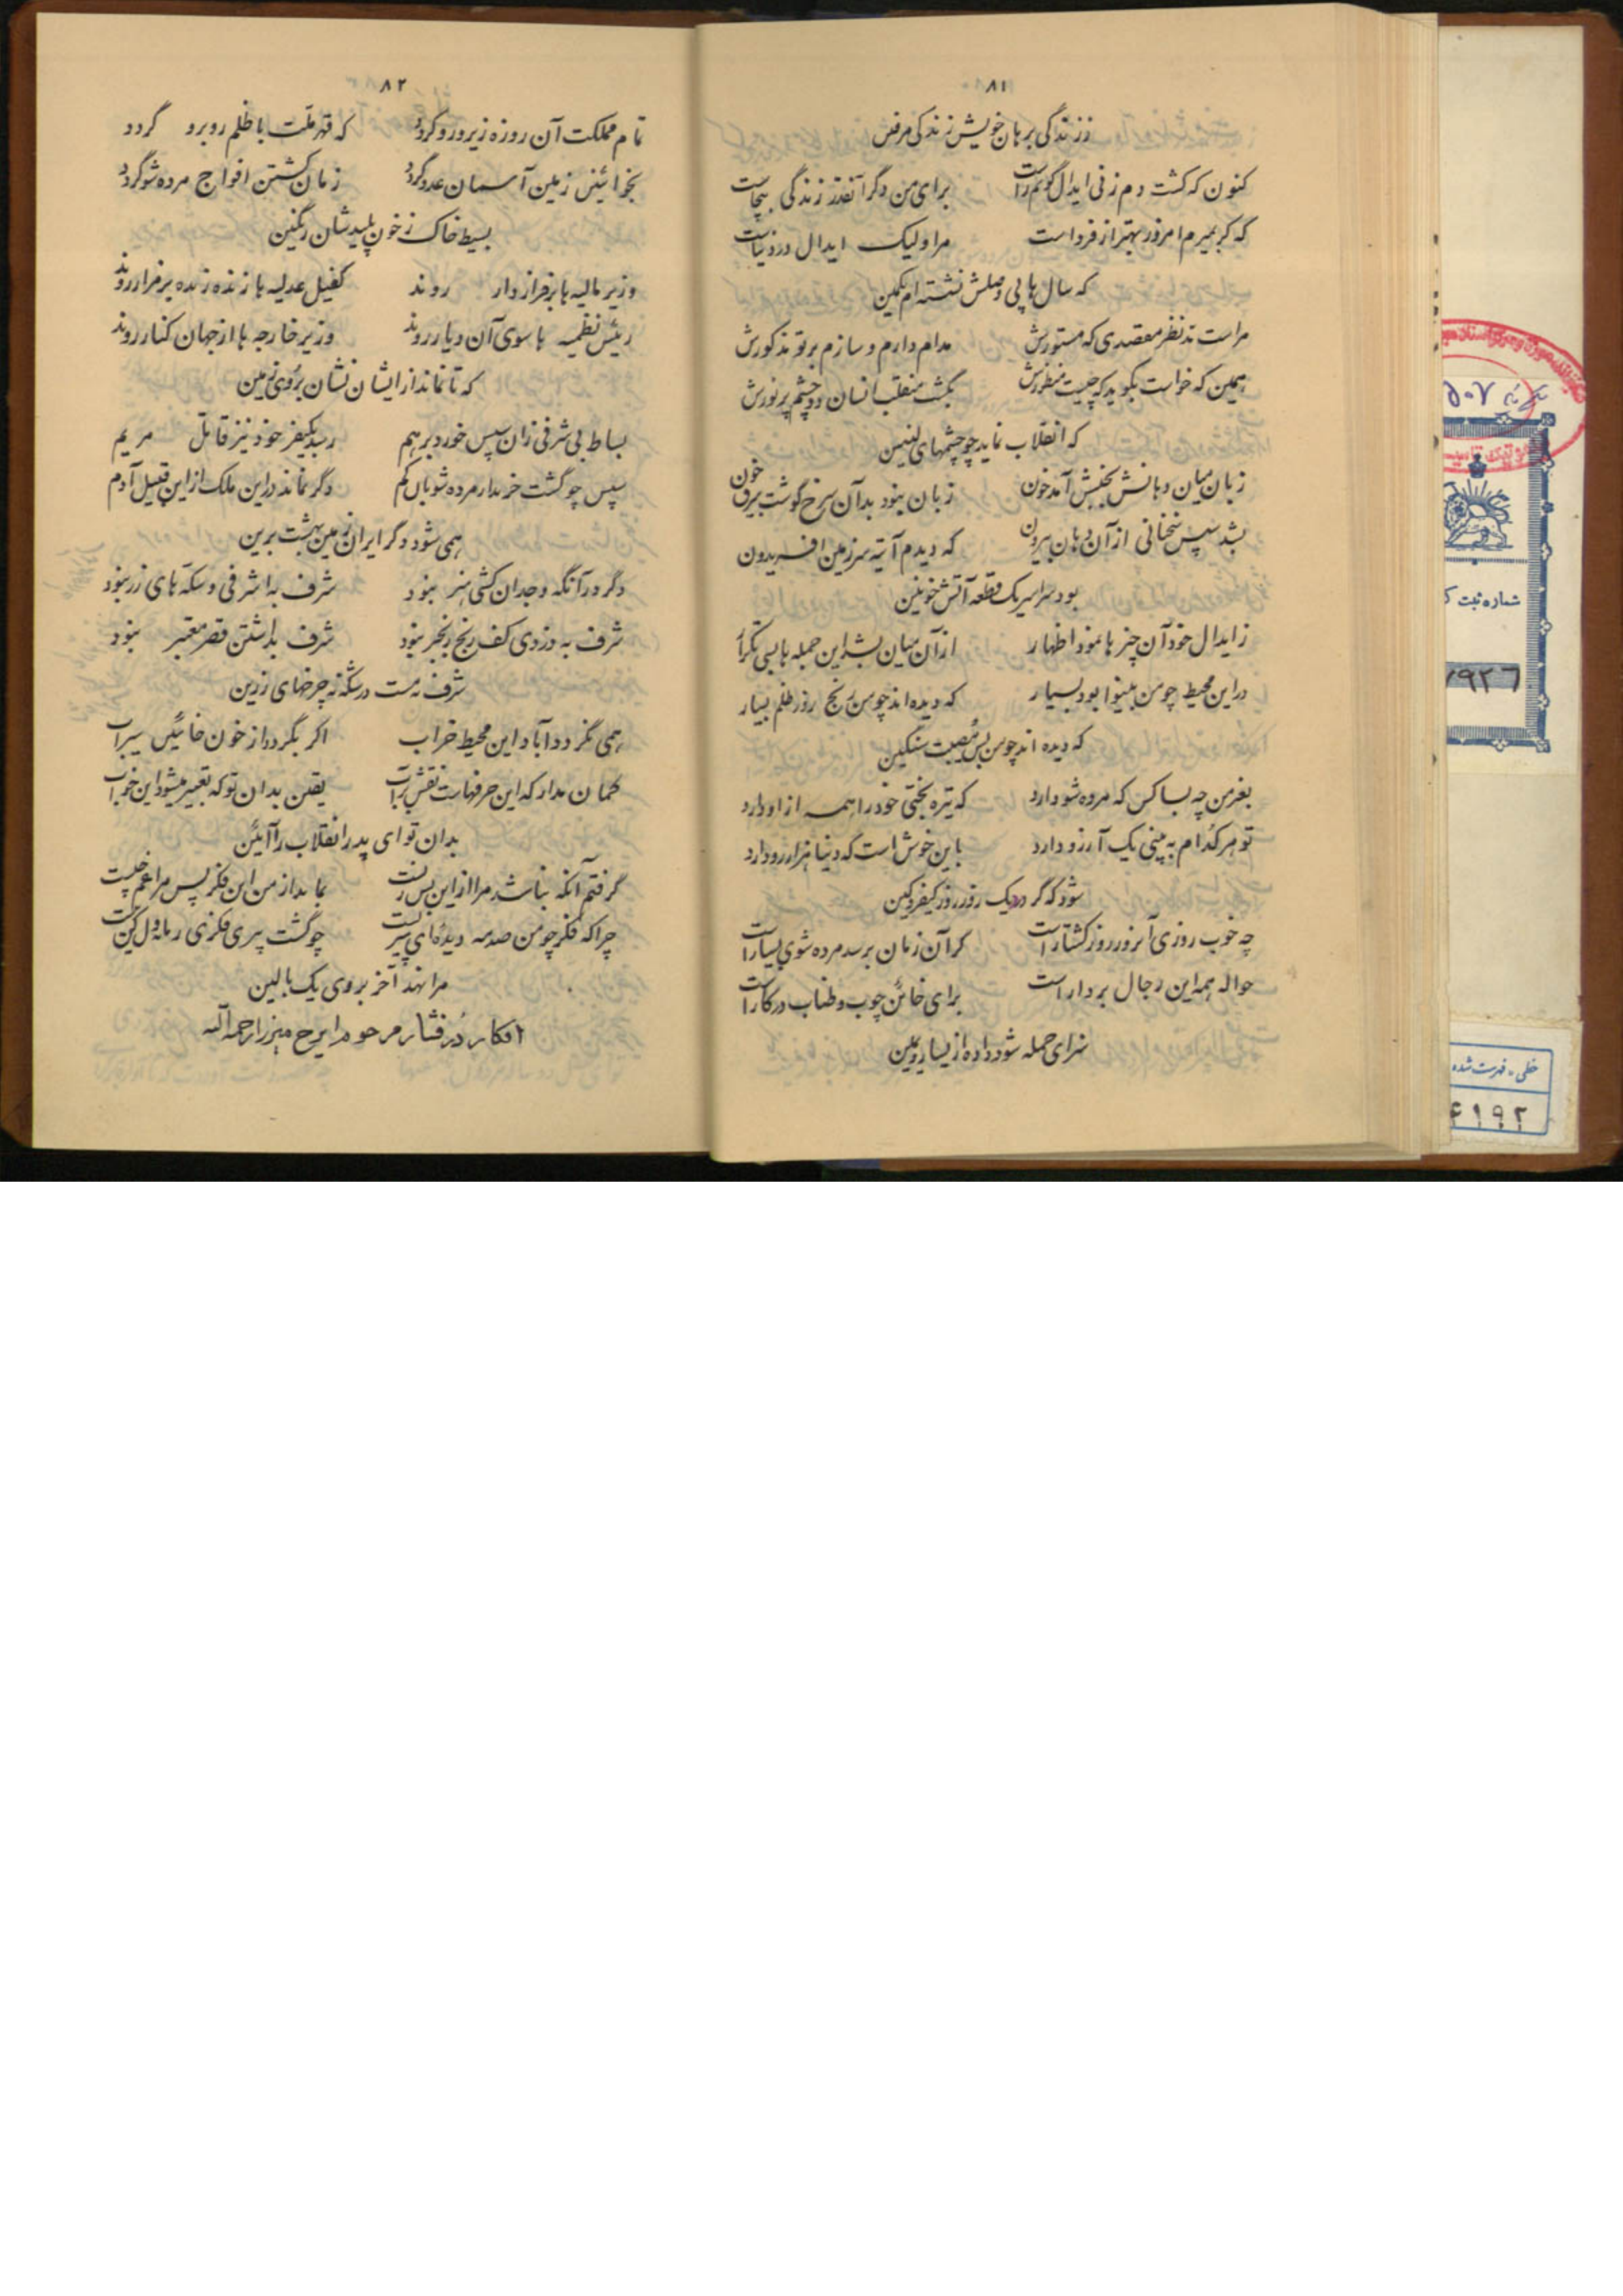 ۸۱
ز زندگی برهان خویش زندگی مرفس
کنون که گشت دم زنی ایدال گویم راست برای من دگر آنقدر زندگی بیجاست
که گر بمیرم امروز بهتر از فرداست مرا ولیک ایدال در دنیاست
که سال ها پی وصلش نشسته‌ام بکمین
مراست مد نظر مقصدی که مستورش مدام دارم و سازم بر تو مذکورش
همین که خواست بگوید که چیست منظورش بگشت منقلب انسان دو چشم پر نورش
که انقلاب نماید چو چشمهای لنین
زبان میان دهانش بجنبش آمد خون زبان نبود بد آن سرخ گوشت بیرق خون
بشد سپس سخنانی از آن دهان بیرون که دیدم آتیه سرزمین افریدون
بود سراسر یک قطعه آتش خونین
ز ایدال خود آن چیزها نمود اظهار از آن میان بشد این جمله ها بسی تکرار
در این محیط چو من بینوا بود بسیار که دیده اند چو من رنج روز ظلم بسیار
که دیده اند چو من بس مصیبت سنگین
بغیر من چه بسا کس که مرده شو دارد که تیره بختی خود را همه از او دارد
تو هر کدام به بینی یک آرزو دارد باین خوش است که دنیا هزار رو دارد
شود که گر دد یک روز روز کیفر و کین
چه خوب روزی آنروز روز کشتار است گر آن زمان برسد مرده شوی بسیار است
حواله همه این رجال بر دار است برای خائن چوب و طناب در کار است
سزای جمله شود داده از یسار و یمین
۸۲
تمام مملکت آن روزه زیر و رو گردد که قهر ملت با ظلم روبرو گردد
بخوائنین زمین آسمان عدو گردد زمان کشتن افواج مرده شو گردد
بسیط خاک ز خون پلیدشان رنگین
وزیر مالیه ها بر فراز دار روند کفیل عدلیه ها زنده زنده بر مزار روند
رئیس نظمیه ها سوی آن دیار روند وزیر خارجه ها از جهان کنار روند
که تا نماند از ایشان نشان بروی زمین
بساط بی شرفی زان سپس خورد بر هم رسد بکیفر خود نیز قاتل مریم
سپس چو گشت خریدار مرده شویان کم دگر نماند در این ملک از این قبیل آدم
همی شود دگر ایران زمین بهشت برین
دگر در آنگه وجدان کشی هنر نبود شرف به اشرفی و سکه های زر نبود
شرف به دزدی کف رنج رنجبر نبود شرف بداشتن قصر معتبر نبود
شرف نه هست درشکه نه چرخهای زرین
همی نگردد آباد این محیط خراب اگر بگردد از خون خائنین سیراب
گمان مدار که این حرفهاست نقش بر آب یقین بدان تو که تعبیر میشود این خواب
بدان تو ای پدر انقلاب را آئین
گرفتم آنکه نباشد مرا از این پس زیست بماند از من این فکر پس مرا غم چیست
چرا که فکر چو من صدمه دیده‌ای پیریست چو گشت پیری فکری
مرا نهند آخر بروی یک بالین
افکار دُرفشار مرحوم ایرج میرزا رحمه‌الله
۵۰۷
شماره ثبت ک
۷۹۲۶
خطی - فهرست شده
۴۱۹۲